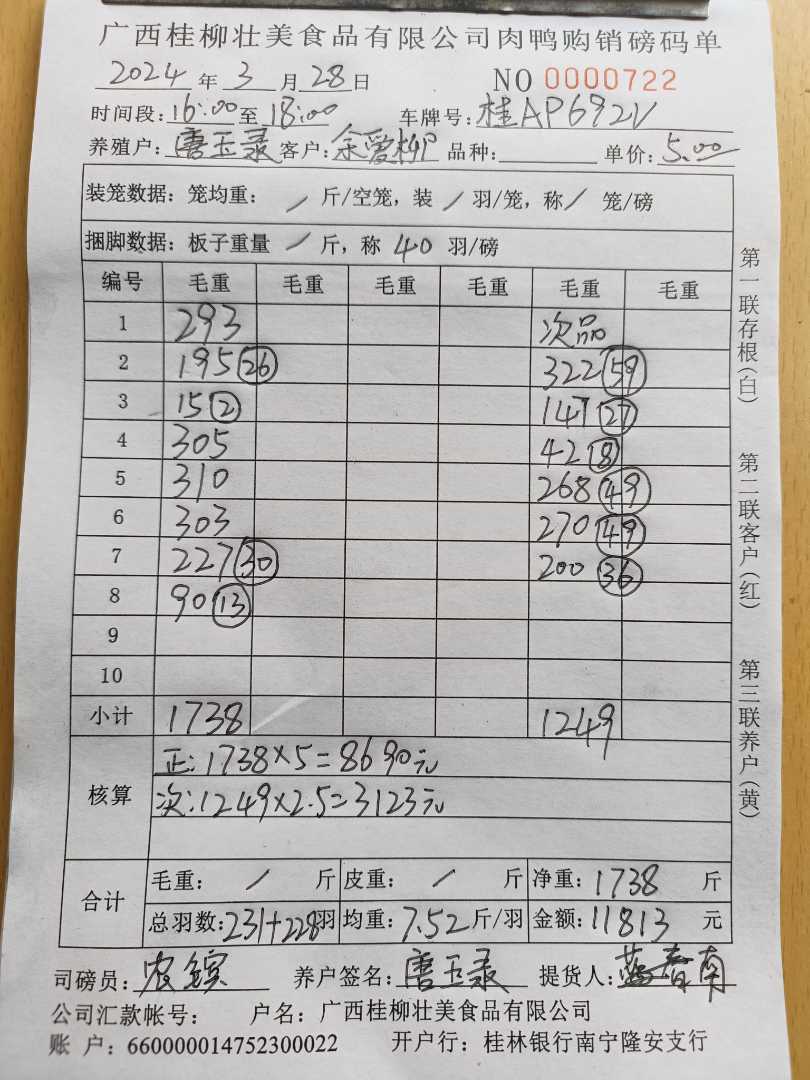 广西桂柳壮美食品有限公司肉鸭购销磅码单
2024 年 3 月 28 日 NO 0000722
时间段: 16:00 至 18:00 车牌号: 桂AP692V
养殖户: 唐玉录 客户: 余爱柳 品种: 单价: 5.00
装笼数据: 笼均重: / 斤/空笼, 装 / 羽/笼, 称 / 笼/磅
捆脚数据: 板子重量 / 斤, 称 40 羽/磅
编号 毛重 毛重 毛重 毛重 毛重 毛重
1 293 次品
2 195 26 322 59
3 15 2 147 27
4 305 42 8
5 310 268 49
6 303 270 49
7 227 30 200 36
8 90 13
9
10
小计 1738 1249
核算 正: 1738×5=8690元
次: 1249×2.5=3123元
合计 毛重: / 斤 皮重: / 斤 净重: 1738 斤
总羽数: 231+228 羽 均重: 7.52 斤/羽 金额: 11813 元
司磅员: 农 养户签名: 唐玉录 提货人: 南
公司汇款帐号: 户名: 广西桂柳壮美食品有限公司
账 户: 660000014752300022 开户行: 桂林银行南宁隆安支行
第一联存根(白)
第二联客户(红)
第三联养户(黄)